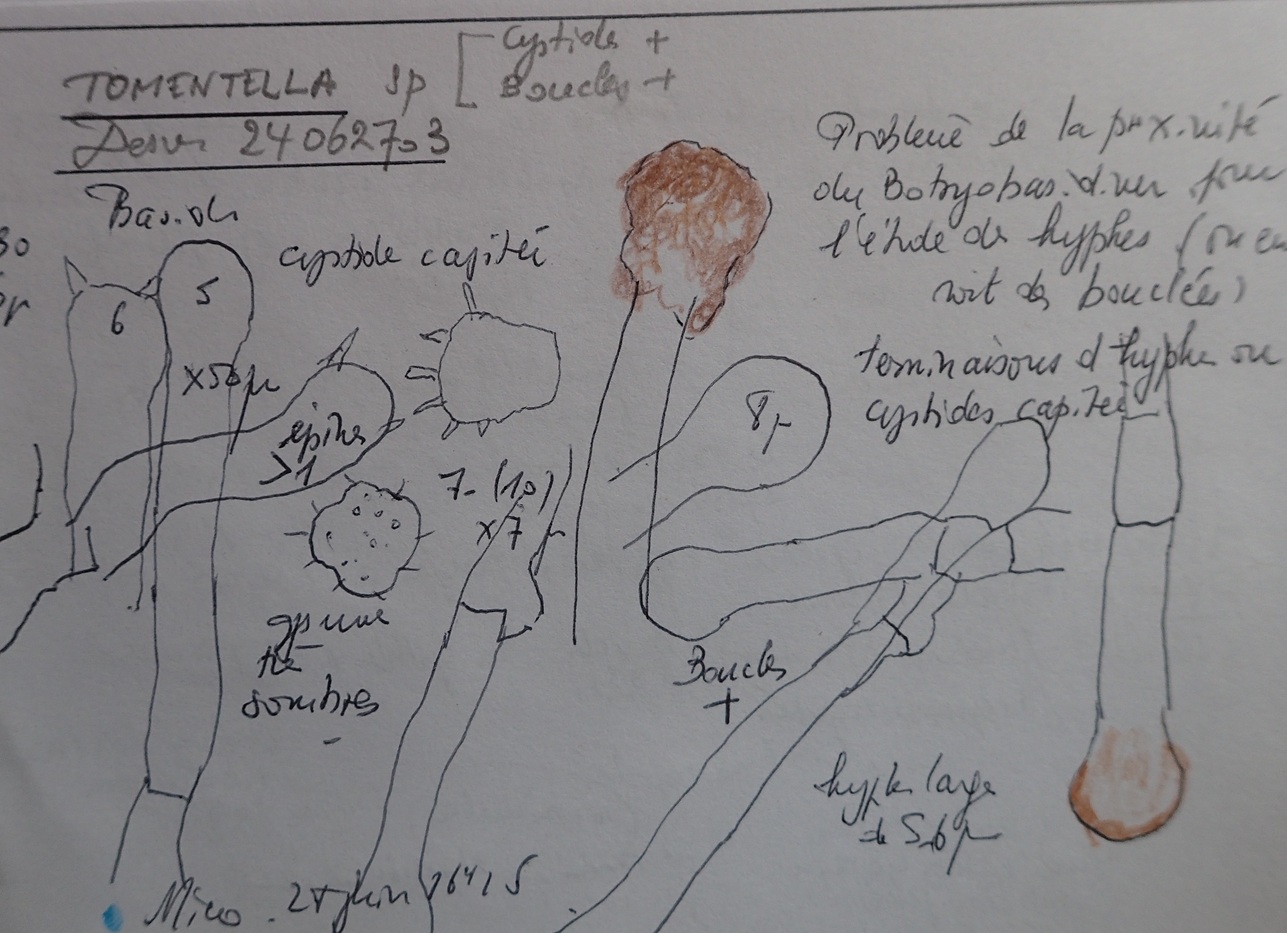 TOMENTELLA sp
Cystide +
Boucles +
240627-3
Baside
cystide capité
6
5
x50µ
épines
>1
7-(10)
x7
sombres
8µ
Problème de la proximité
du Botryobasidium pour
l'étude de hyphes (on en
voit des bouclées)
terminaisons d'hyphe ou
cystides capité
Boucles
+
hyphe large
de 5-6µ
Micro. 27 juin